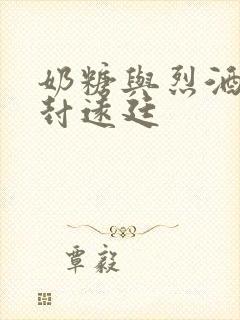 奶糖與烈酒
封遠廷
覃毅